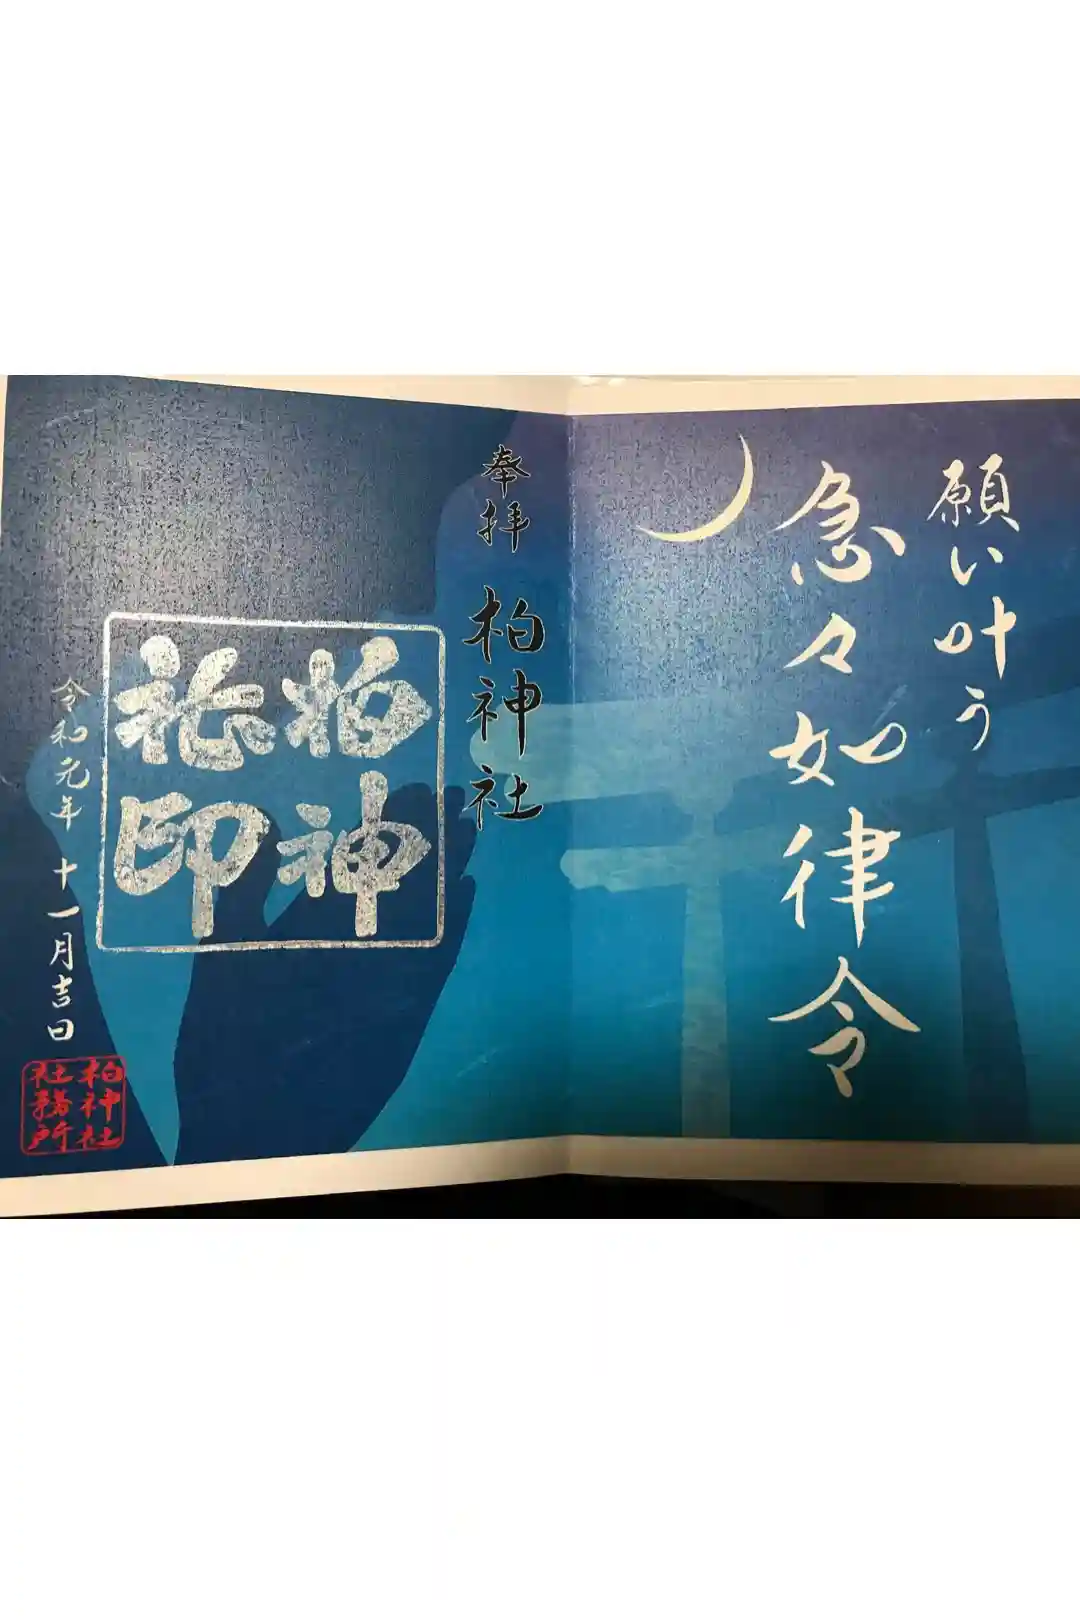 願い叶う
急々如律令
奉拝 柏神社
柏神
社印
令和元年 十一月吉日
柏神社
社務所